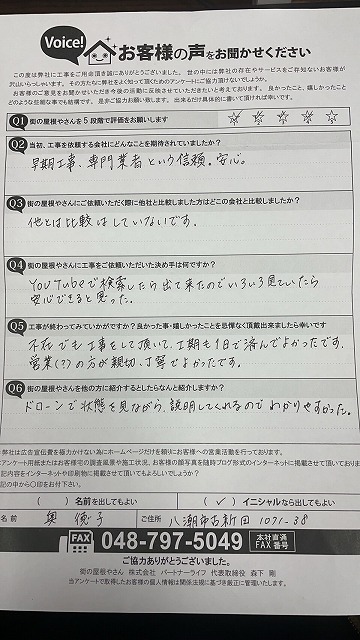 Voice!
お客様の声をお聞かせください
この度は弊社に工事をご用命頂き誠にありがとうございました。世の中には弊社の存在やサービスをご存知ないお客様が
沢山いらっしゃいます。その方たちに弊社をよく知って頂くためのアンケートにご協力頂けないでしょうか。
お客様のご意見をお聞かせいただき今後の活動に反映させていただきたいと考えております。良かったこと、嬉しかったこと
どのような些細な事でも結構です。是非ご協力お願い致します。出来るだけ具体的に書いて頂ければ幸いです。
Q1 街の屋根やさんを5段階で評価をお願いします
Q2 当初、工事を依頼する会社にどんなことを期待されていましたか?
早期工事、専門業者という信頼。安心。
Q3 街の屋根やさんにご依頼いただく際に他社と比較しました方はどこの会社と比較しましたか?
他とは比較はしていないです。
Q4 街の屋根やさんに工事をご依頼いただいた決め手は何ですか?
YouTubeで検索したら出て来たのでいろいろ見ていたら
安心できると思った。
Q5 工事が終わってみていかがですか?良かった事・嬉しかったことを忌憚なく頂戴出来ましたら幸いです
不在でも工事をして頂いて、工期も1日で済んでよかったです。
営業(?)の方が親切、丁寧でよかったです。
Q6 街の屋根やさんを他の方に紹介するとしたらなんと紹介しますか?
ドローンで状態を見ながら、説明してくれるのでわかりやすかった。
弊社は広告宣伝費を極力かけない為にホームページだけを頼りにお客様への営業活動を行っております。
アンケート用紙またはお客様宅の調査風景や施工状況、お客様の顔写真を随時ブログ形式のインターネットに掲載させて頂いており
記内容をインターネットや印刷物に掲載させて頂いてもよろしいでしょうか?
記の中から〇印をお付下さい。
( )名前を出してもよい (✓)イニシャルなら出してもよい
名前 奥 徳子 ご住所 八潮市古新田1071-38
FAX 048-797-5049 本社直通
FAX番号
ご協力ありがとうございました。
街の屋根やさん 株式会社 パートナーライフ 代表取締役 森下 剛
当アンケートで取得したお客様の個人情報は関係法規に基づき厳正に管理いたします。